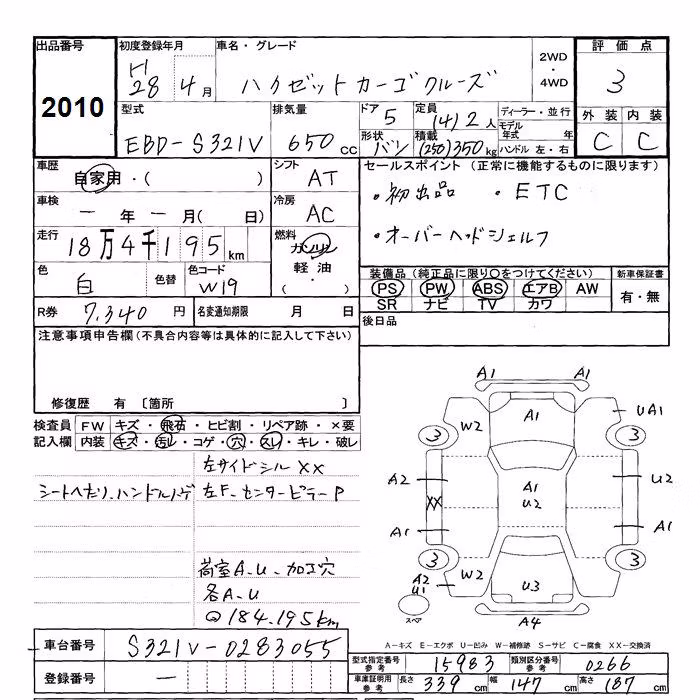 出品番号 2010
初度登録年月 H28 4月
車名・グレード ハイゼットカーゴクルーズ
2WD・4WD
評価点 3
外装 内装
C C
型式 EBD-S321V
排気量 650cc
ドア 5
定員 (4)2人
ディーラー・並行
形状 バン
積載 (250)350kg
モデル年式 年
ハンドル 左・右
車歴 自家用・( )
シフト AT
車検 ー年ー月( 日)
冷房 AC
走行 18万4千195km
燃料 ガソリン 軽油・( )
色 白
色替
色コード W19
R券 7,340円
名変通知期限 月 日
セールスポイント (正常に機能するものに限ります)
・初出品 ・ETC
・オーバーヘッドシェルフ
装備品 (純正品に限り○をつけてください)
新車保証書
PS PW ABS エアB AW
SR ナビ TV カワ
有・無
後日品
注意事項申告欄(不具合内容等は具体的に記入して下さい)
修復歴 有 〔箇所 〕
検査員 FW キズ・飛石・ヒビ割・リペア跡・×要
記入欄 内装 キズ・汚レ・コゲ・穴・スレ・キレ・破レ
左サイドシルXX
シートヘたり、ハンドルハゲ 左F、センターピラーP
荷室A、U、加工穴
各A、U
Q184,195km
A1 A1
A1
W2
UA1
3 3
A2
A1
U2
U2
XX
A1
A1
3 3
A2
U1
W2
W2
U3
スペア
A4
車台番号 S321V-0283055
登録番号 ー
A-キズ E-エクボ U-凹み W-補修跡 S-サビ C-腐食 XX-交換済
型式指定番号 参考 15983
類別区分番号 参考 0266
車庫証明用 参考 長さ 339cm 幅 147cm 高さ 187cm